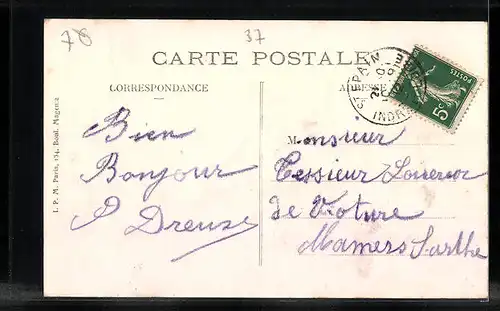 78
37
CARTE POSTALE
CORRESPONDANCE
ADRESSE
I. P. M. Paris, 124, Boul. Magenta
POSTES
5c
ST EPAIN
INDRE
Bien
Bonjour
A Dreuze
Monsieur
Tessieur Loueur
de Voiture
Mamers Sarthe